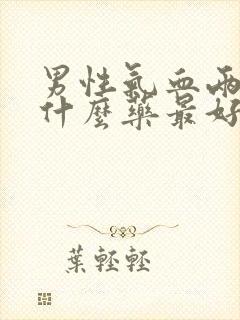 男性氣血兩
什麼藥最好
葉輕輕